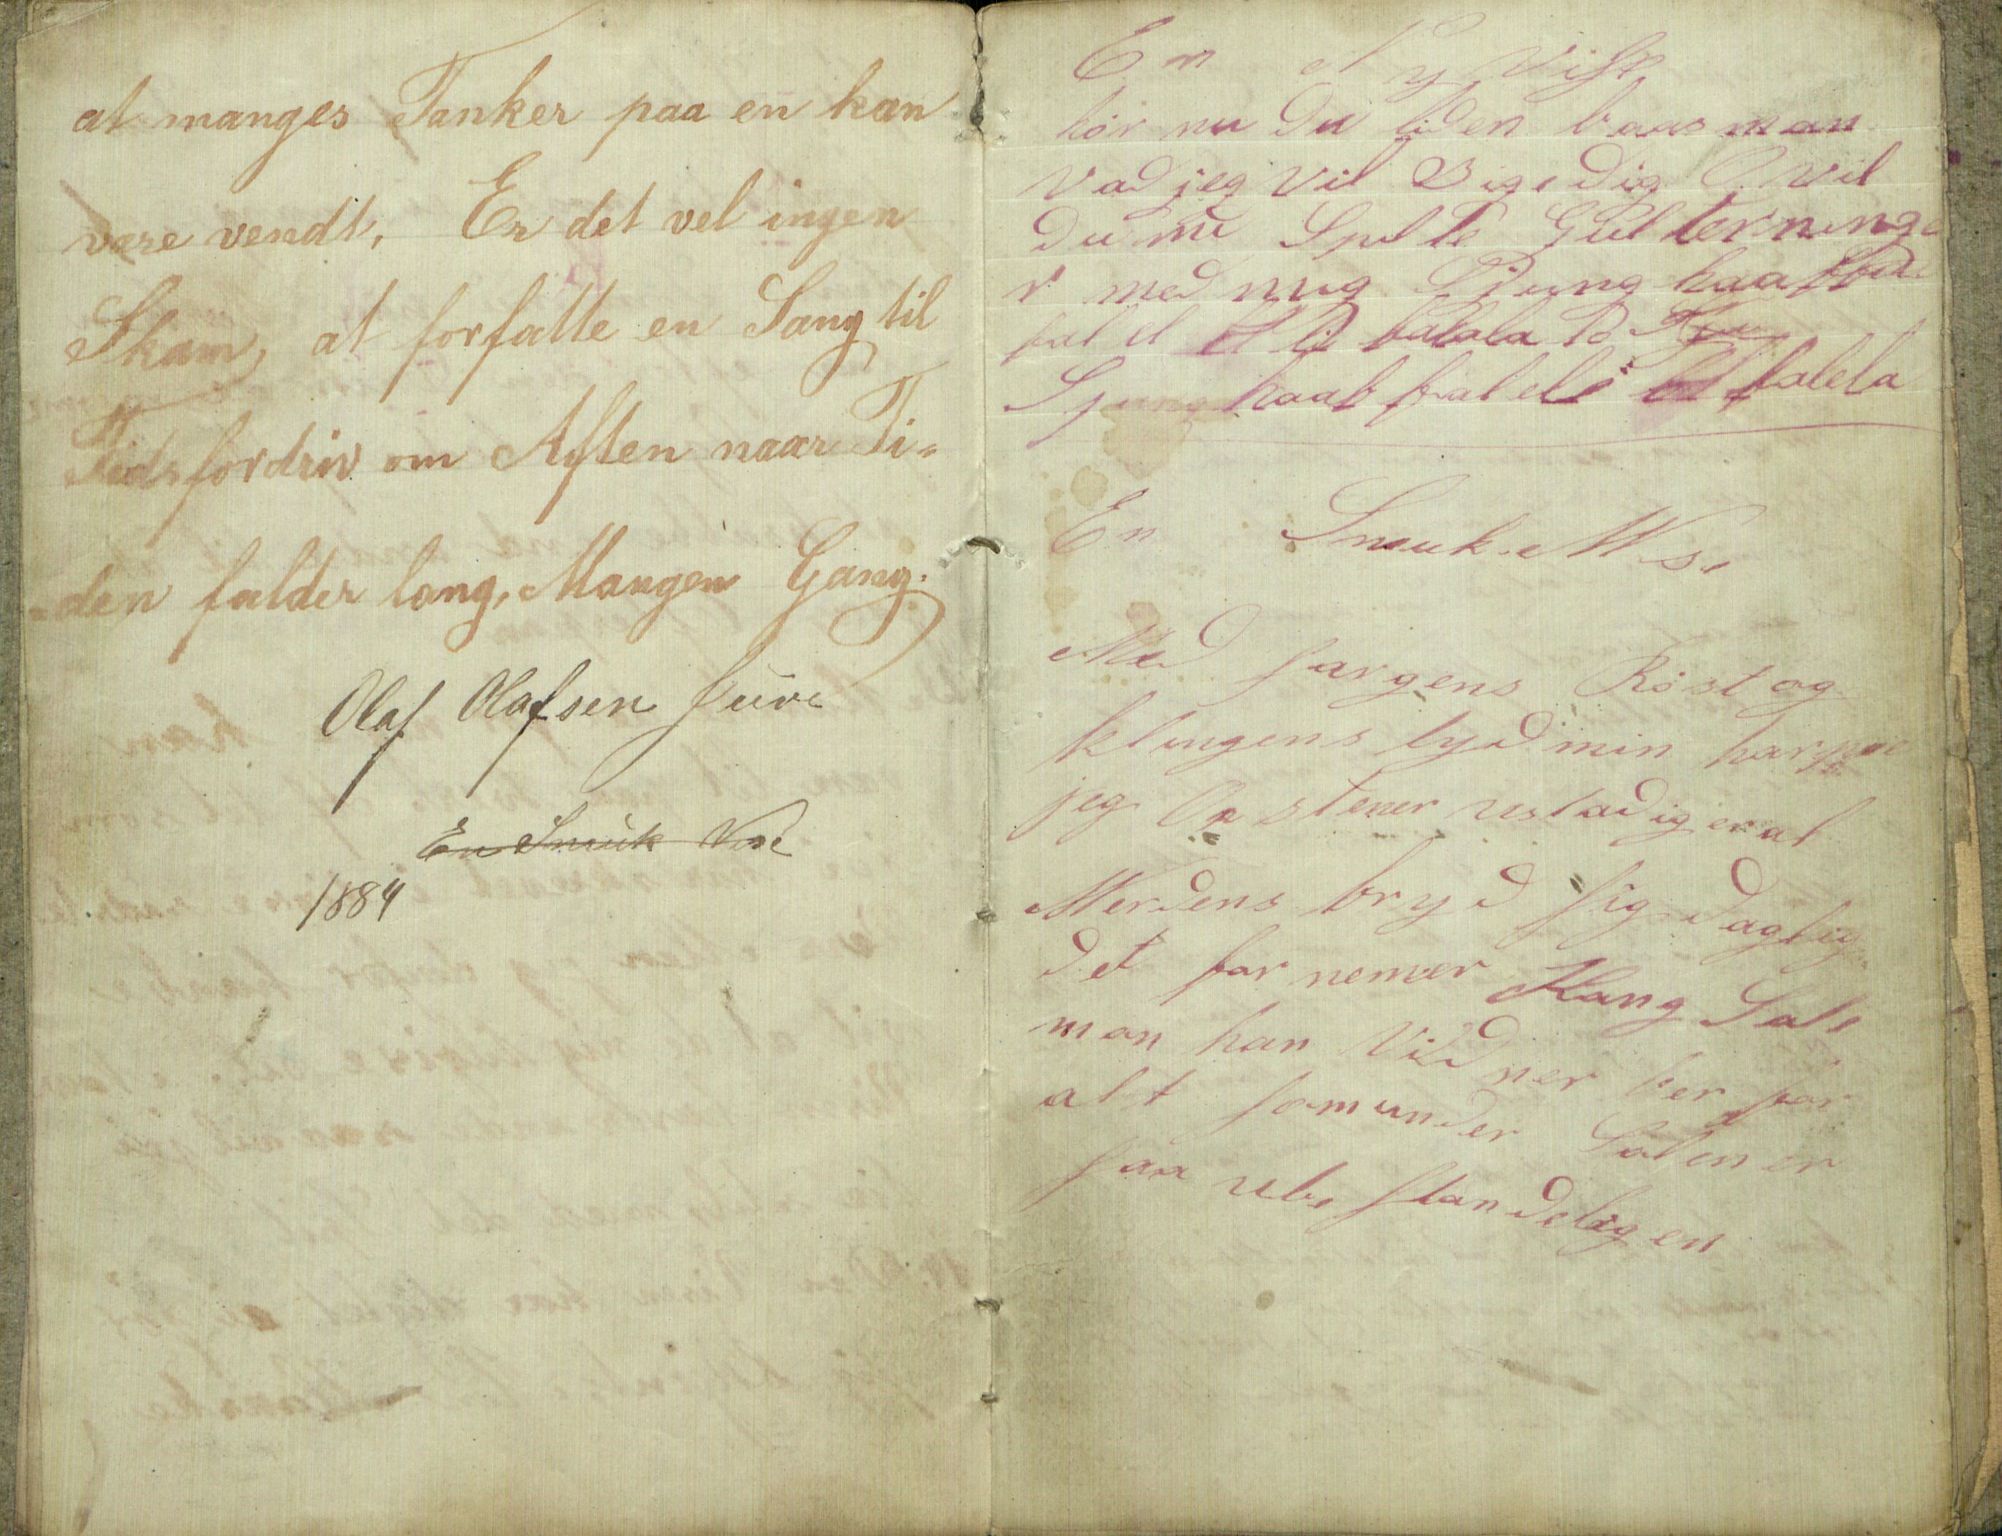 at manges Tanker paa en kan
være vendt, Er det vel ingen
Skam, at forfatte en Sang til
Tidsfordriv om Aften naar Ti-
-den falder lang, Mangen Gang.
Olaf Olafsen Juve
En Smuk Vise
1884
En Ny Vise
hør nu du liden baasman
Vad jeg vil Sige dig Vil
du nu Spille Gulterninge
r med mig
fal el falala
Sjung haab fal ele falela
En Smuk Vise
Med sorgens Røst og
klingens lyd min harpe
jeg Op stemer ustadig er al
Verdens bryd sig daglig
det for nemer Kong Sale
mon han Vidner her for
alt som under Solen er
saa ube standeligen